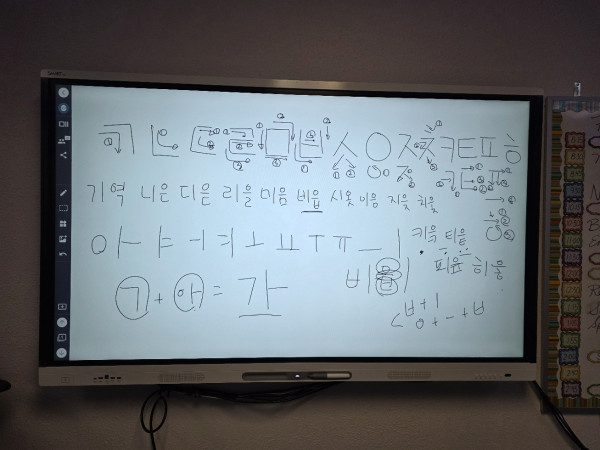 ㄱ ㄴ ㄷ ㄹ ㅁ ㅂ ㅅ ㅇ ㅈ ㅊ ㅋ ㅌ ㅍ ㅎ
기역 니은 디은 리을 미음 비읍 시옷 이응 지읒 치읓
키읔 티읕
피읖 히읗
아 ㅑ ㅓ ㅕ ㅗ ㅛ ㅜ ㅠ ㅡ ㅣ
비읍
ㄱ + 아 = 가
ㅂ + ㅣ
ㅇ + ㅡ + ㅂ